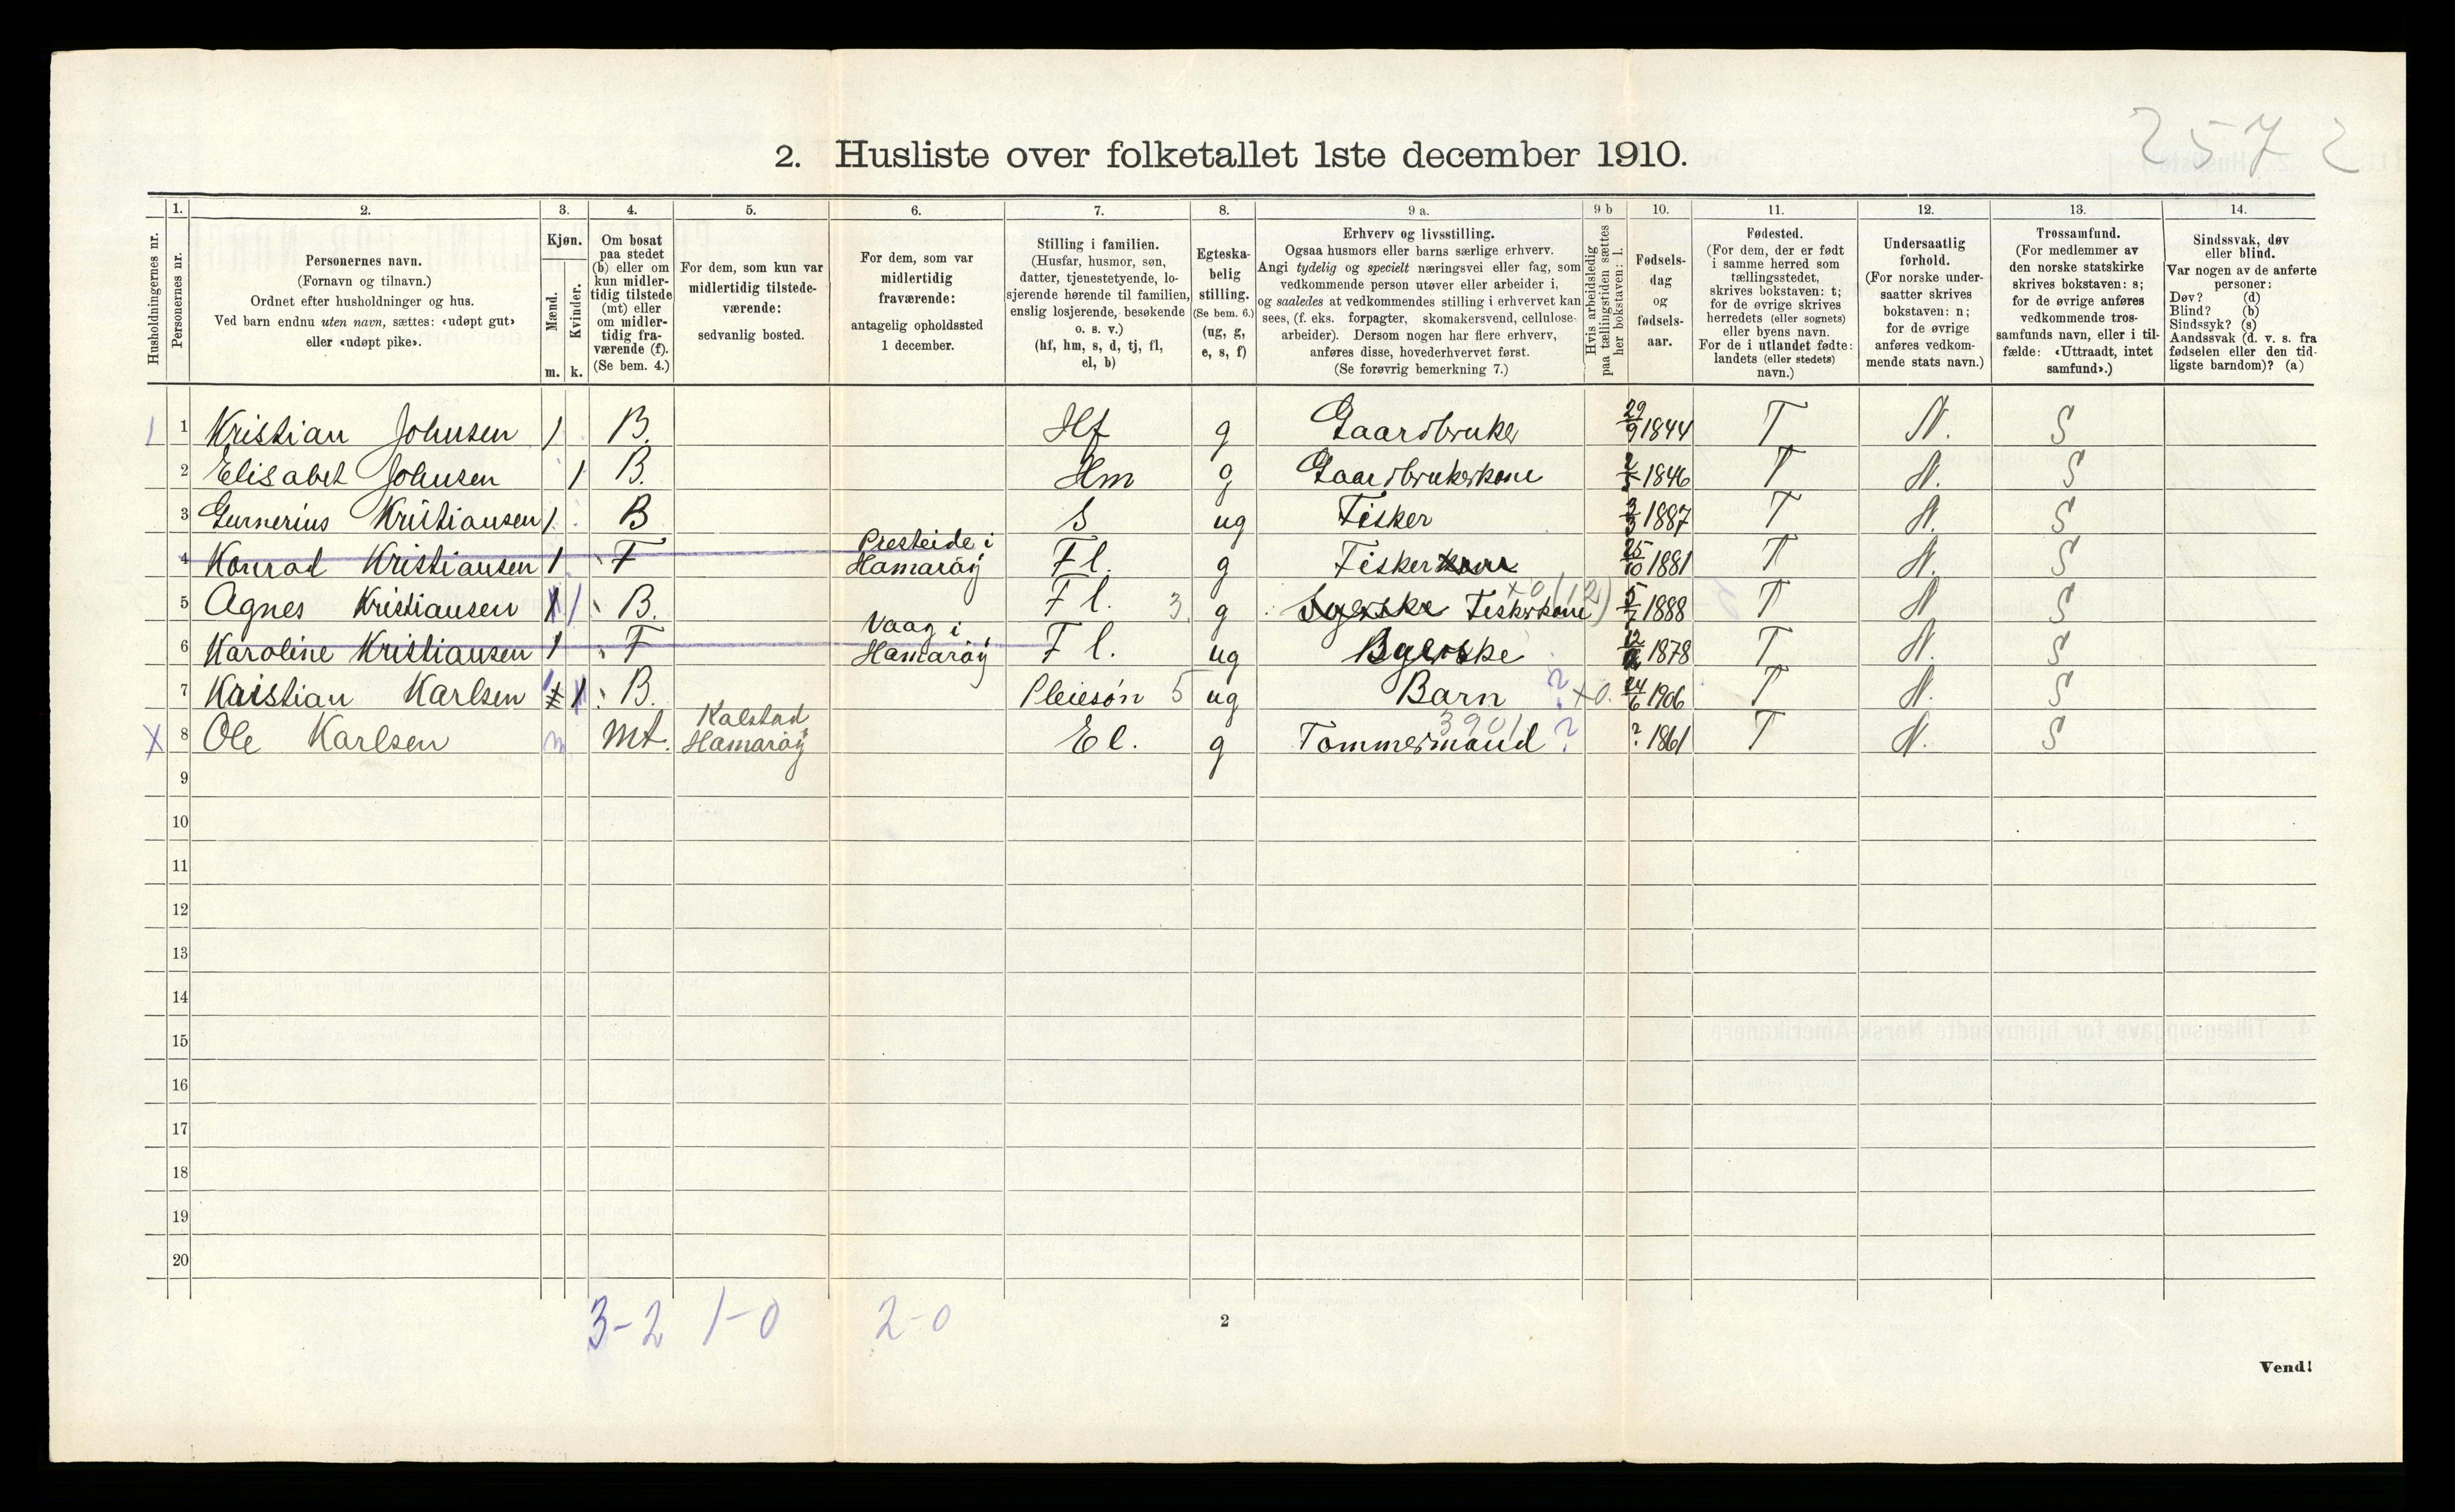 2572
2. Husliste over folketallet 1ste december 1910.
Husholdningernes nr.
1. Personernes nr.
2. Personernes navn.
(Fornavn og tilnavn.)
Ordnet efter husholdninger og hus.
Ved barn endnu uten navn, sættes: «udøpt gut»
eller «udøpt pike».
3. Kjøn.
Mænd. m.
Kvinder. k.
4. Om bosat
paa stedet
(b) eller om
kun midler-
tidig tilstede
(mt) eller
om midler-
tidig fra-
værende (f).
(Se bem. 4.)
5. For dem, som kun var
midlertidig tilstede-
værende:
sedvanlig bosted.
6. For dem, som var
midlertidig
fraværende:
antagelig opholdssted
1 december.
7. Stilling i familien.
(Husfar, husmor, søn,
datter, tjenestetyende, lo-
sjerende hørende til familien,
enslig losjerende, besøkende
o. s. v.)
(hf, hm, s, d, tj, fl,
el, b)
8. Egteska-
belig
stilling.
(Se bem. 6.)
(ug, g,
e, s, f)
9 a. Erhverv og livsstilling.
Ogsaa husmors eller barns særlige erhverv.
Angi tydelig og specielt næringsvei eller fag, som
vedkommende person utøver eller arbeider i,
og saaledes at vedkommendes stilling i erhvervet kan
sees, (f. eks. forpagter, skomakersvend, cellulose-
arbeider). Dersom nogen har flere erhverv,
anføres disse, hovederhvervet først.
(Se forøvrig bemerkning 7.)
9 b Hvis arbeidsledig
paa tællingstiden sættes
her bokstaven: l.
10. Fødsels-
dag
og
fødsels-
aar.
11. Fødested.
(For dem, der er født
i samme herred som
tællingsstedet,
skrives bokstaven: t;
for de øvrige skrives
herredets (eller sognets)
eller byens navn.
For de i utlandet fødte:
landets (eller stedets)
navn.)
12. Undersaatlig
forhold.
(For norske under-
saatter skrives
bokstaven: n;
for de øvrige
anføres vedkom-
mende stats navn.)
13. Trossamfund.
(For medlemmer av
den norske statskirke
skrives bokstaven: s;
for de øvrige anføres
vedkommende tros-
samfunds navn, eller i til-
fælde: «Uttraadt, intet
samfund».)
14. Sindssvak, døv
eller blind.
Var nogen av de anførte
personer:
Døv? (d)
Blind? (b)
Sindssyk? (s)
Aandssvak (d. v. s. fra
fødselen eller den tid-
ligste barndom)? (a)
1 1 Kristian Johnsen 1 B. Hf g Gaardbruker 29/9 1844 T N. S
2 Elisabet Johnsen 1 B. Hm g Gaardbrukerkone 1846 T N. S
3 Gunnerius Kristiansen 1 B S ug Fisker 3/3 1887 T N. S
4 Konrad Kristiansen 1 F Presteide i Hamarøy Fl. g Fisker 25/10 1881 T N. S
5 Agnes Kristiansen 1 B. Fl. 3 g Fiskerkone x0(12) 5/7 1888 T N S
6 Karoline Kristiansen 1 F Vaag i Hamarøy Fl. ug 1878 T N. S
7 Kristian Karlsen 1 B. Pleiesøn 5 ug Barn ? x0. 24/6 1906 T N. S
X 8 Ole Karlsen m Mt. Kalstad Hamarøy El. g Tømmermand 3901 ? ? 1861 T N. S
9
10
11
12
13
14
15
16
17
18
19
20
3-2 1-0 2-0
2
Vend!